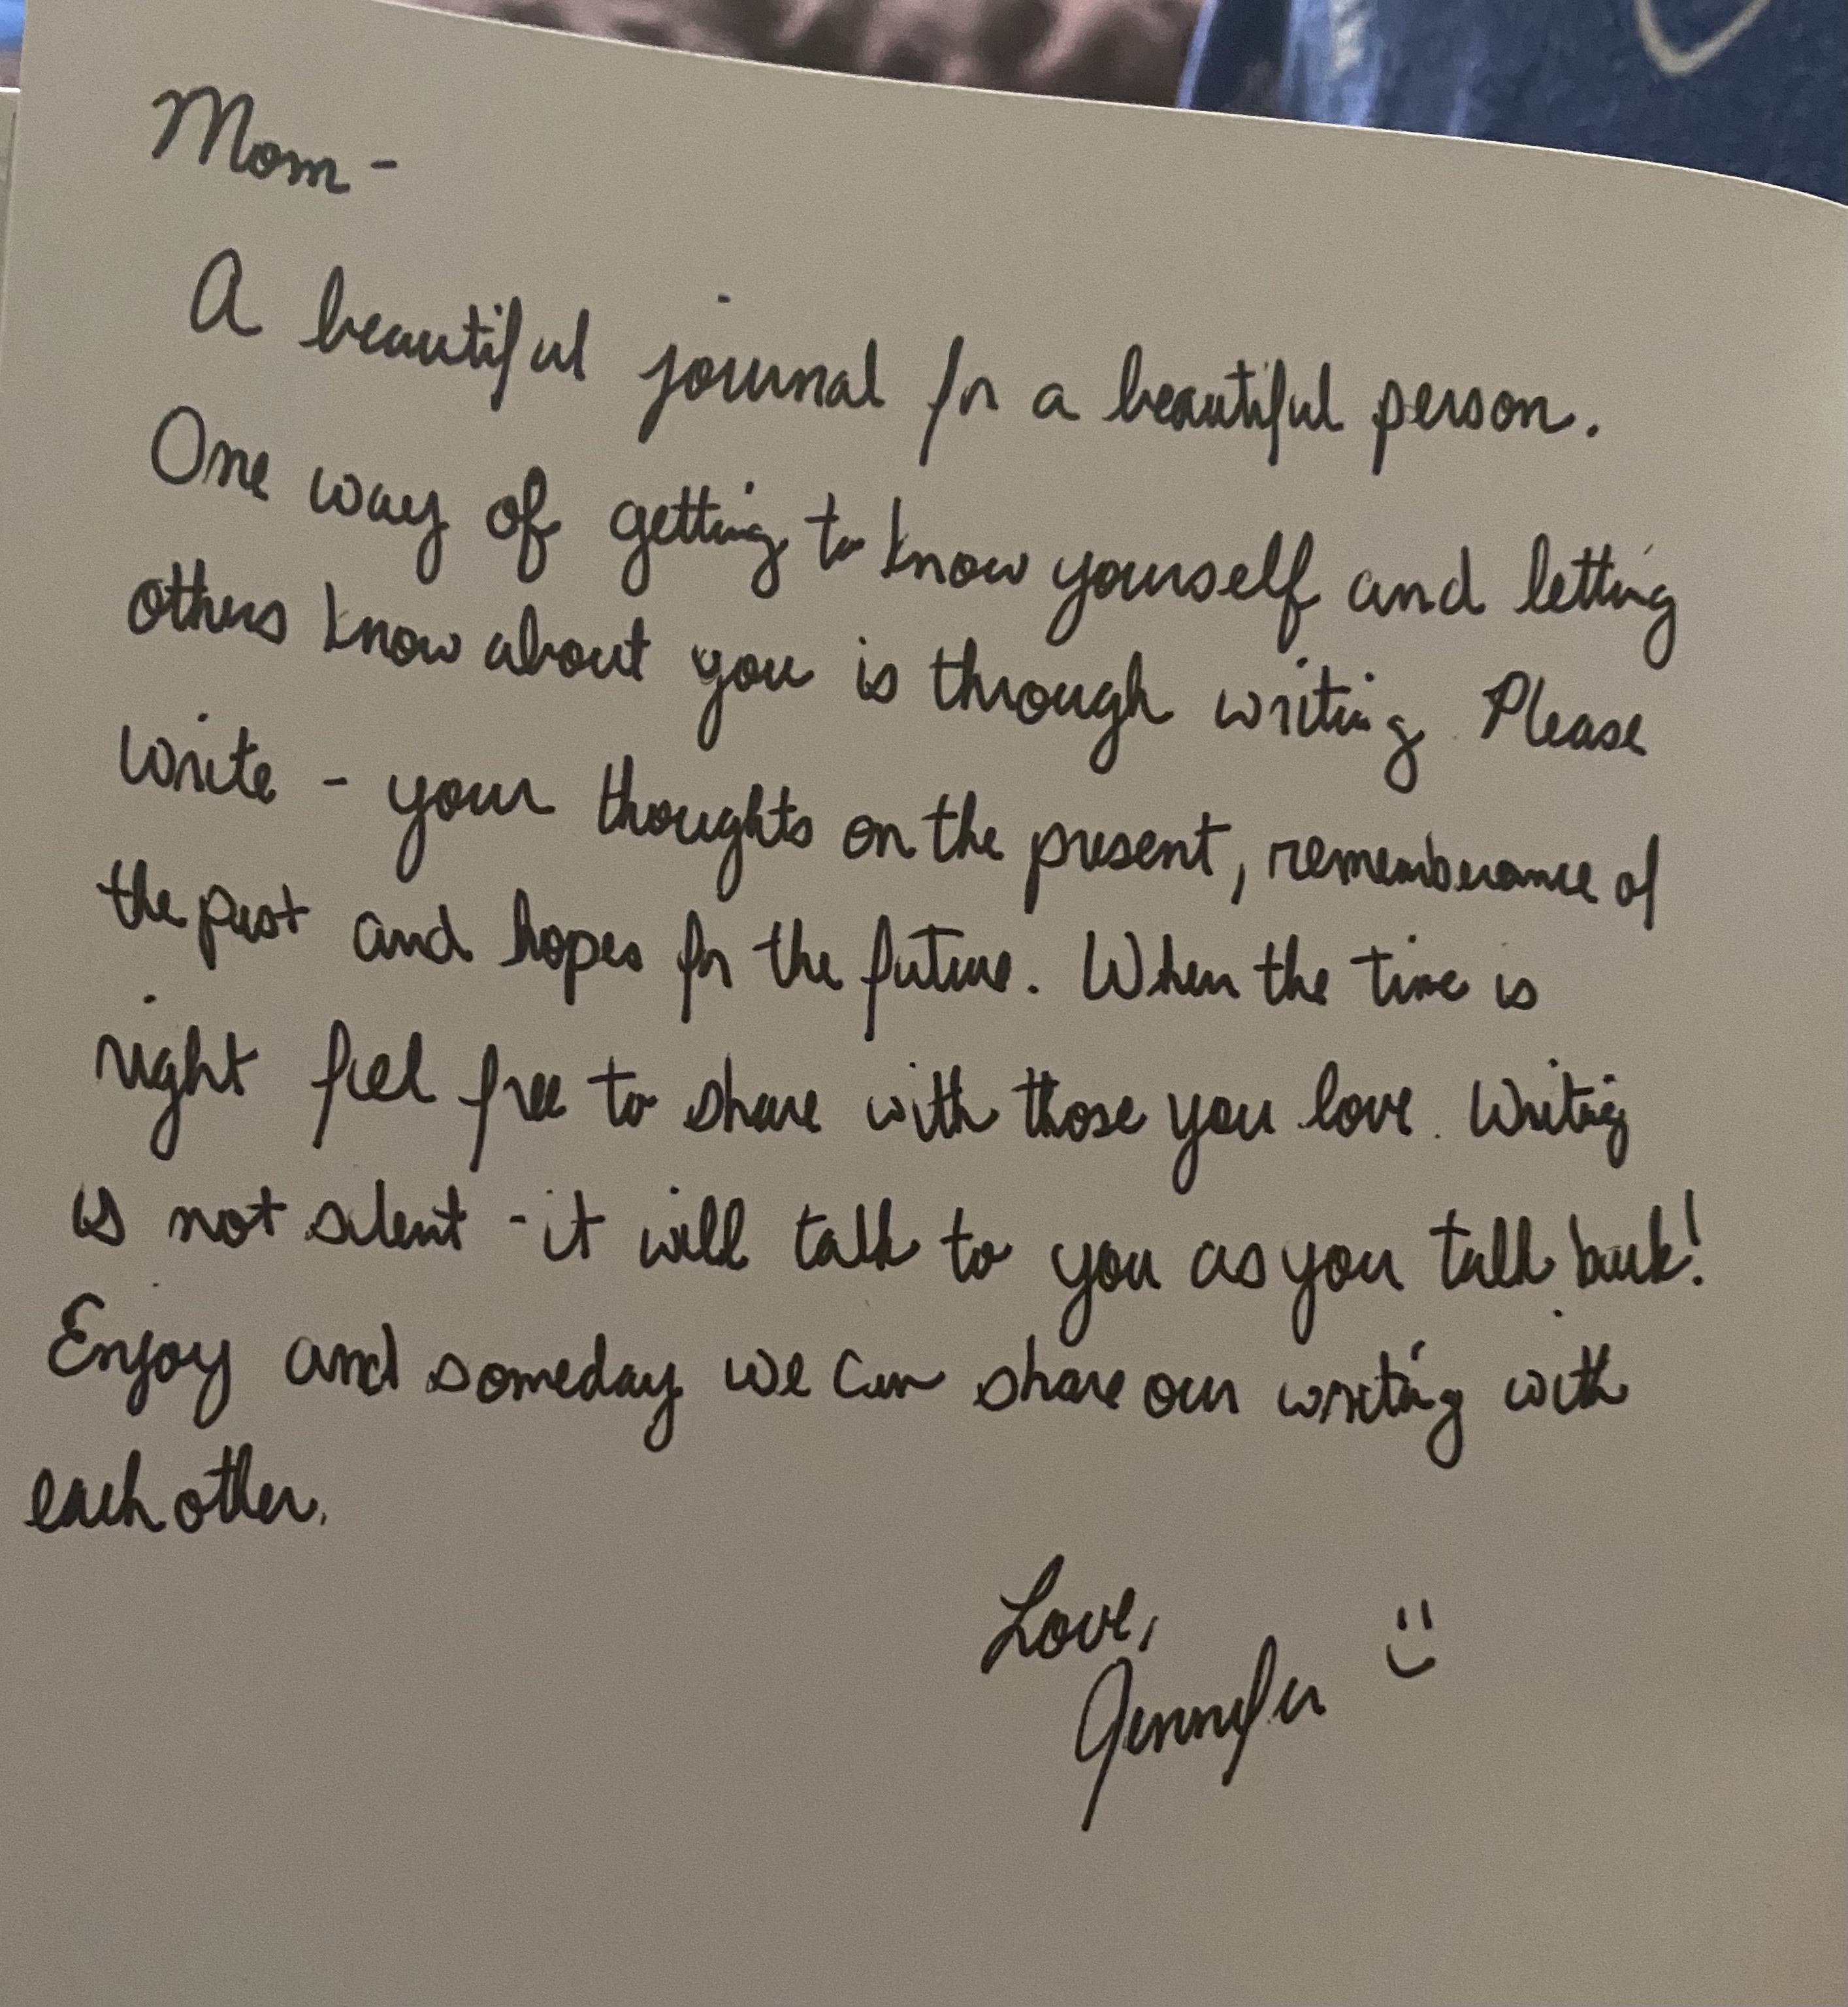 Mom -
A beautiful journal for a beautiful person.
One way of getting to know yourself and letting
others know about you is through writing. Please
write - your thoughts on the present, rememberance of
the past and hopes for the future. When the time is
right feel free to share with those you love. Writing
is not silent - it will talk to you as you talk back!
Enjoy and someday we can share our writing with
each other.
Love,
Jennifer :)